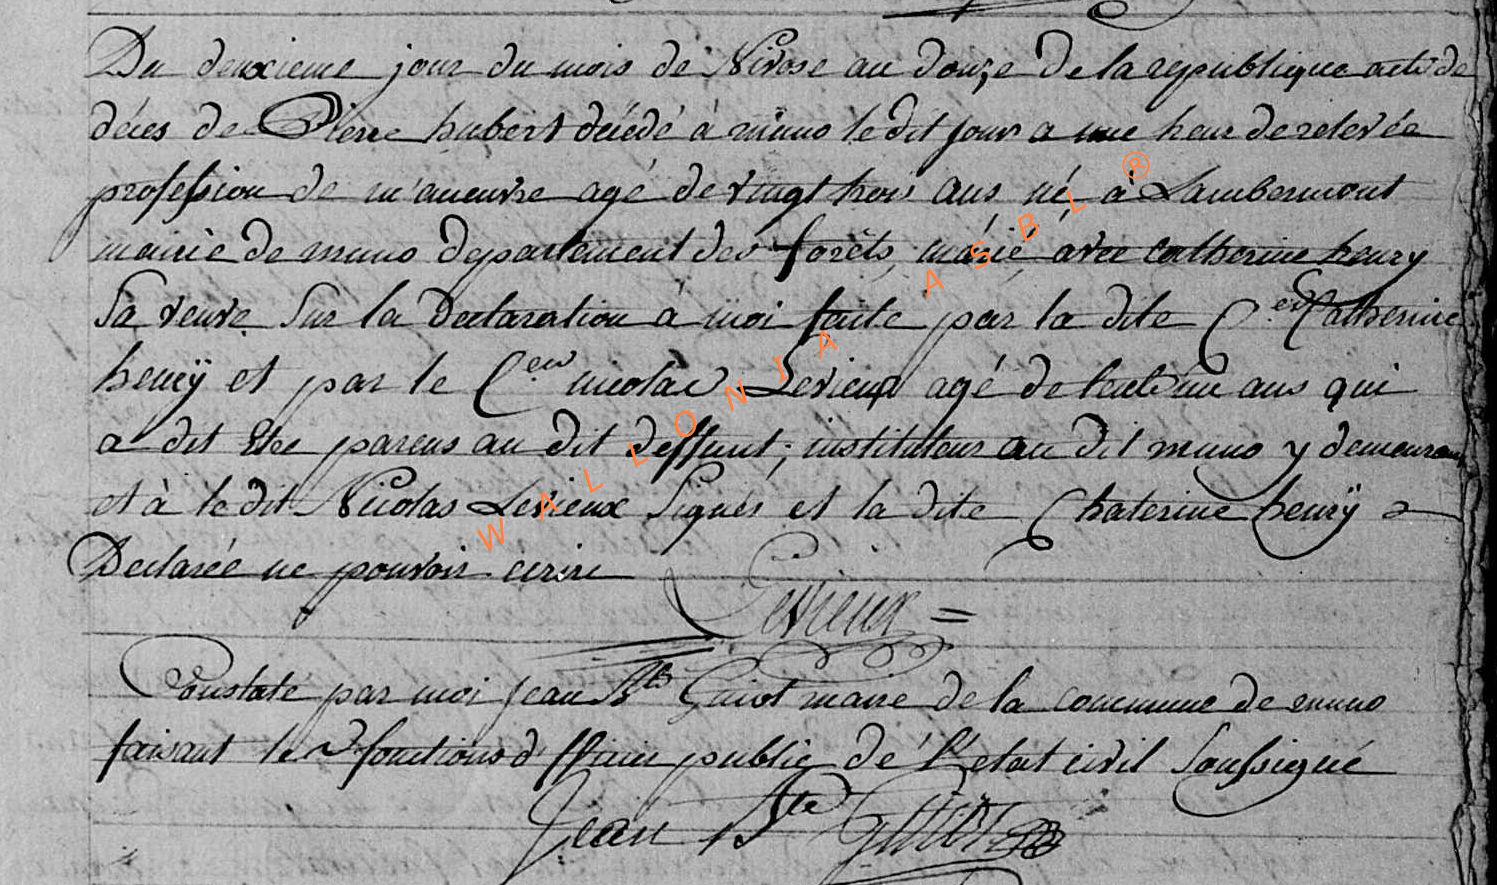 Du deuxieme jour du mois de Nivose an douze de la republique acte de
décès de Pierre hubert décédé à muno le dit jour a une heur de relevée
profession de m'aneuvre agé de vingt trois ans né à Lambermont
mairie de muno departement des forêts, marié avec catherine henry
Sa veuve Sur la Declaration à moi faite par la dite Cen Catherine
henrÿ et par le Cen nicolas Levieux agé de trente un ans qui
a dit etre parens au dit deffunt, instituteur au dit muno y demeurant
et à le dit Nicolas Levieux Signés et la dite Chaterine henrÿ a
Declarée ne pouvoir ecrire
Levieux =
Constate par moi jean Bte Guiot maire de la commune de muno
faisant les fonctions d'officier public de L'etat civil Soussigné
Jean Bte Guiot
WALLONIA ASBL ®